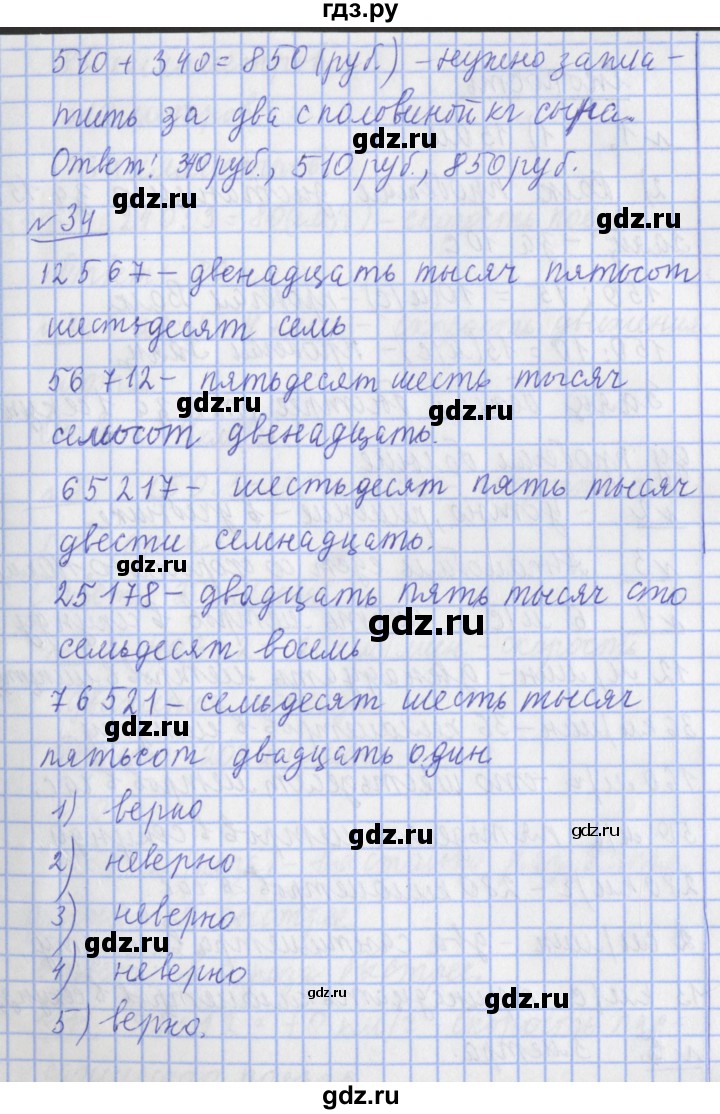 гдз.ру
510 + 340 = 850 (руб.) - нужно запла-
тить за два с половиной кг сыра.
Ответ: 340 руб., 510 руб., 850 руб.
gdz.ru
gdz.ru
№ 34
12 567 - двенадцать тысяч пятьсот
шестьдесят семь
56 712 - пятьдесят шесть тысяч
gdz.ru
gdz.ru
семьсот двенадцать.
65 217 - шестьдесят пять тысяч
двести семнадцать.
gdz.ru
25 178 - двадцать пять тысяч сто
gdz.ru
семьдесят восемь
76 521 - семьдесят шесть тысяч
gdz.ru
пятьсот двадцать один.
1) верно
gdz.ru
gdz.ru
2) неверно
3) неверно
gdz.ru
4) неверно
gdz.ru
gdz.ru
5) верно.
gdz.ru